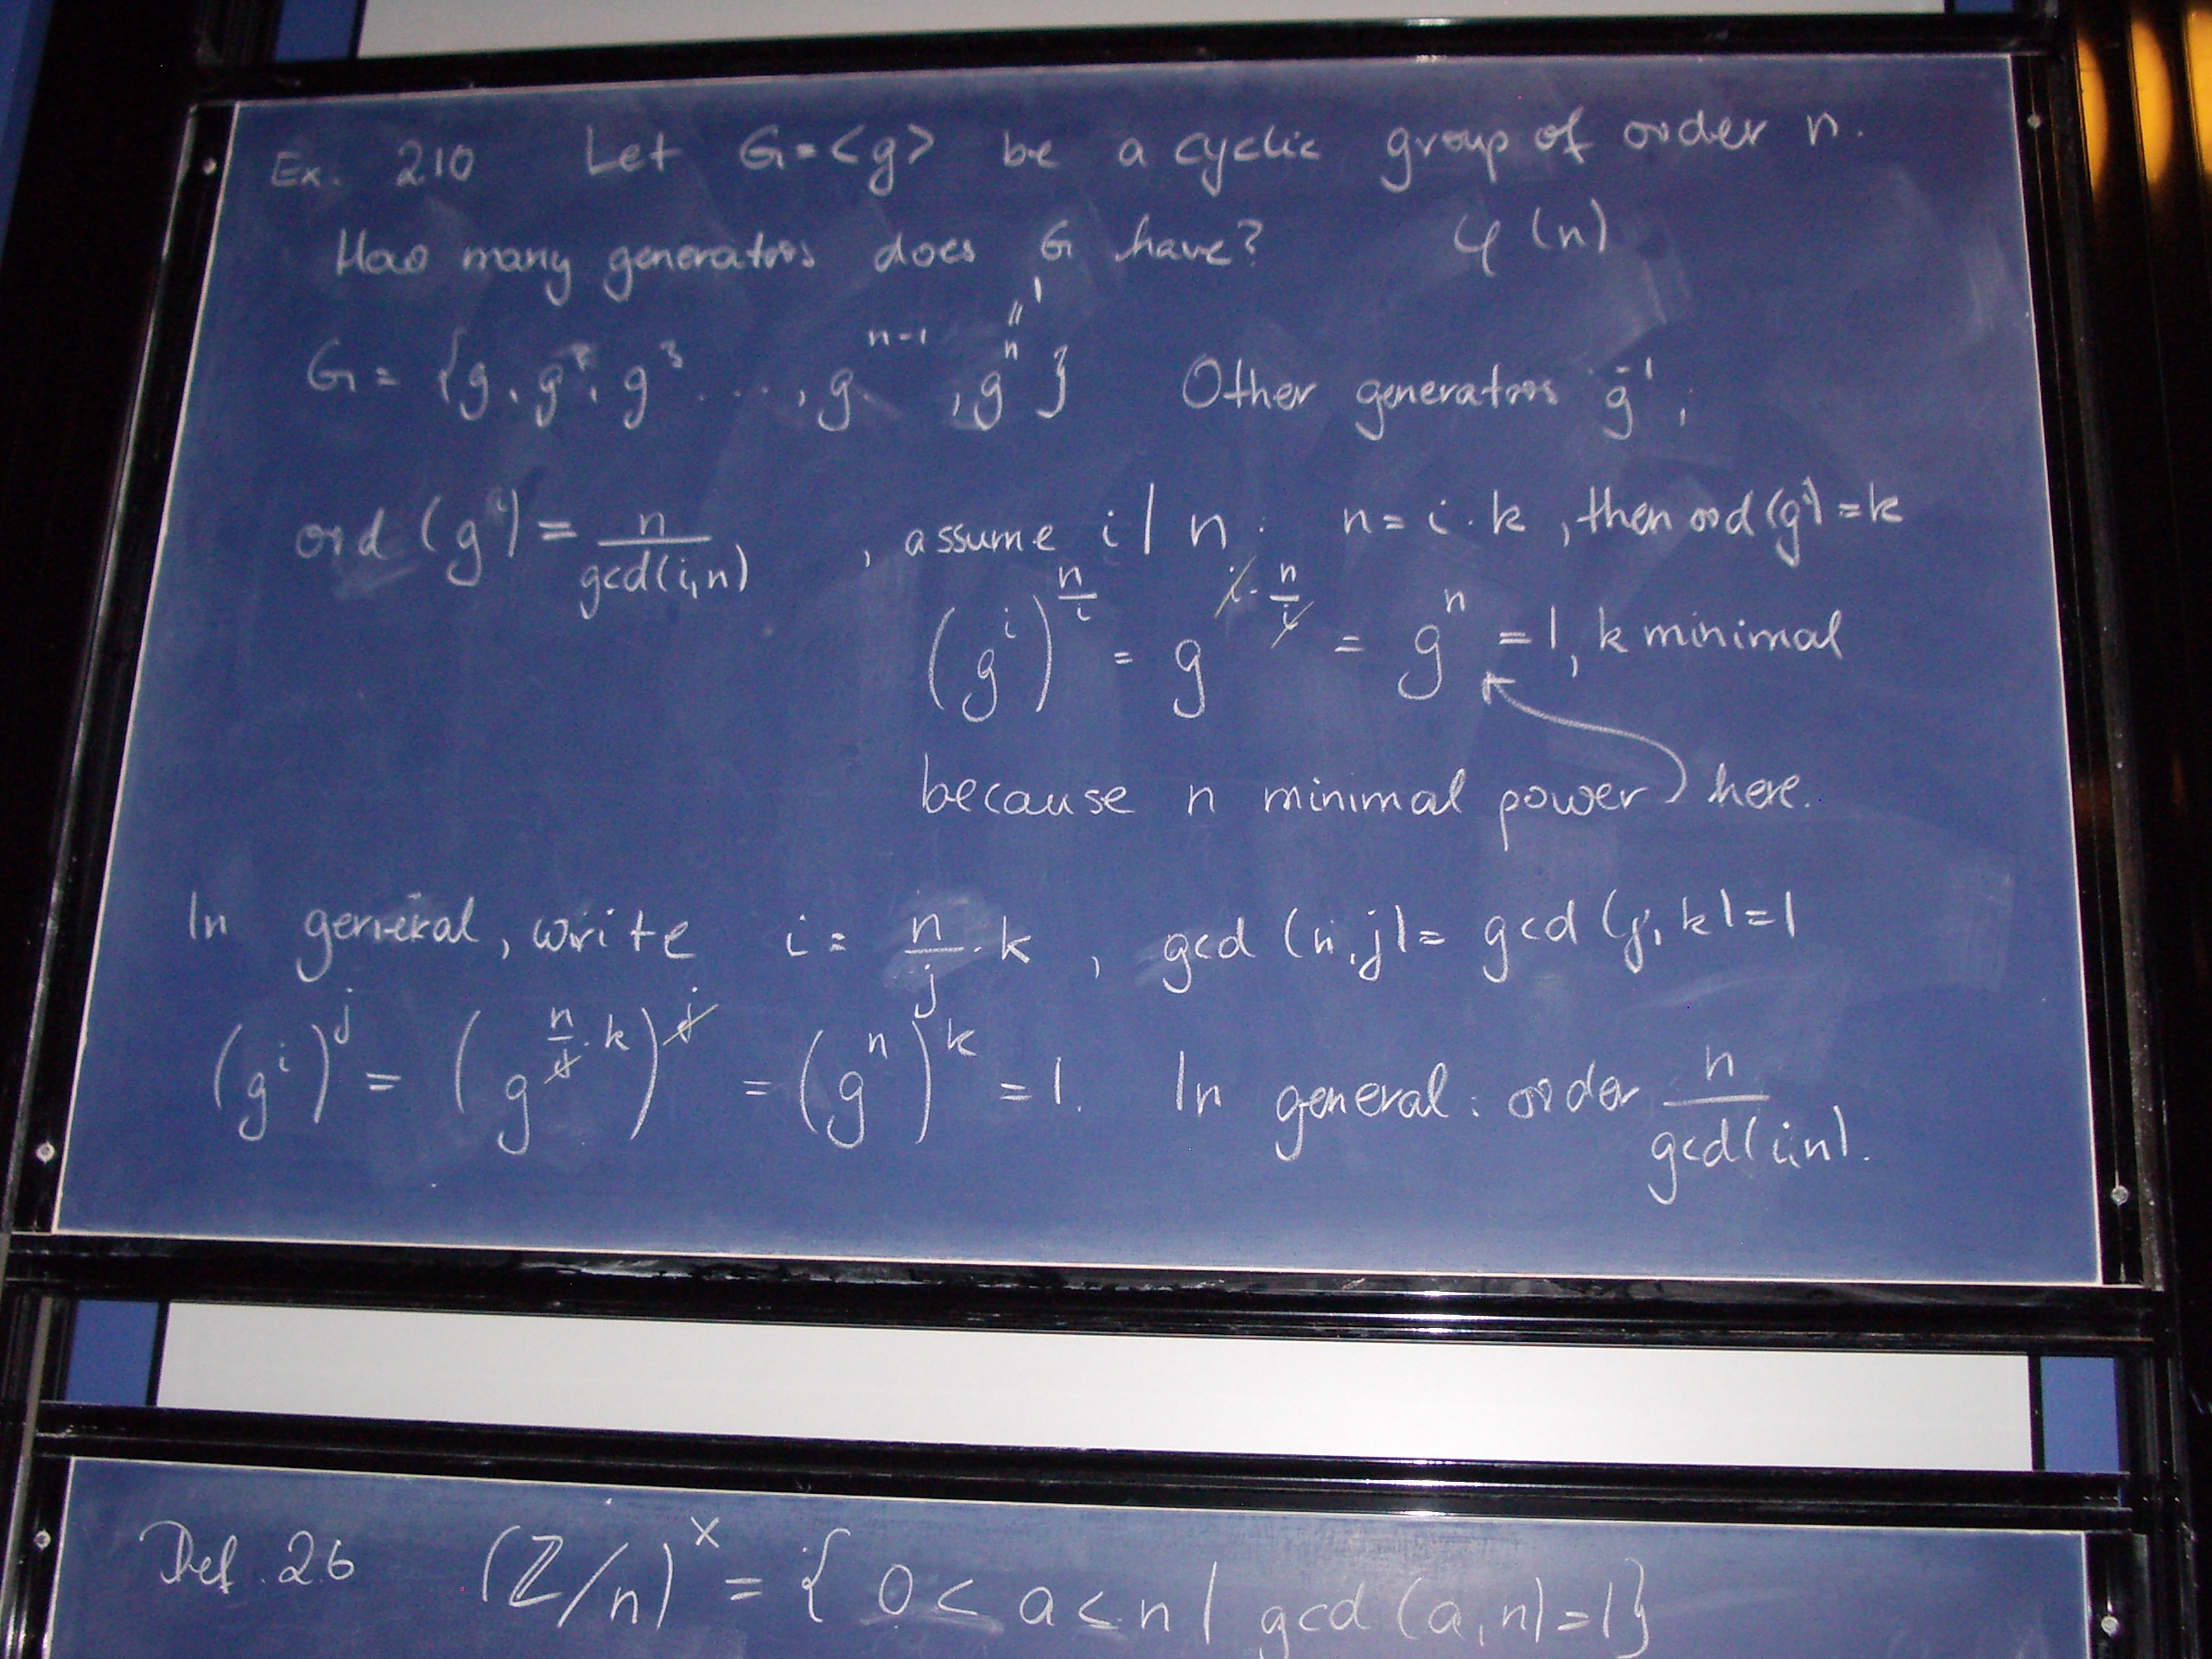 Ex. 2.10 Let G=<g> be a cyclic group of order n.
How many generators does G have? φ(n)
G = {g, g², g³ ..., gⁿ⁻¹, gⁿ} Other generators g⁻¹,
" 1
ord (gⁱ) = n/gcd(i,n) , assume i | n : n = i · k , then ord (gⁱ) = k
(gⁱ)^(n/i) = g^(i · n/i) = gⁿ = 1, k minimal
because n minimal power here.
In general, write i = n/j · k , gcd (n,j) = gcd (j,k) = 1
(gⁱ)ʲ = (g^(n/j · k))ʲ = (gⁿ)ᵏ = 1. In general : order n/gcd(i,n).
Def. 2.6 (ℤ/n)ˣ = { 0 < a < n | gcd (a,n) = 1}